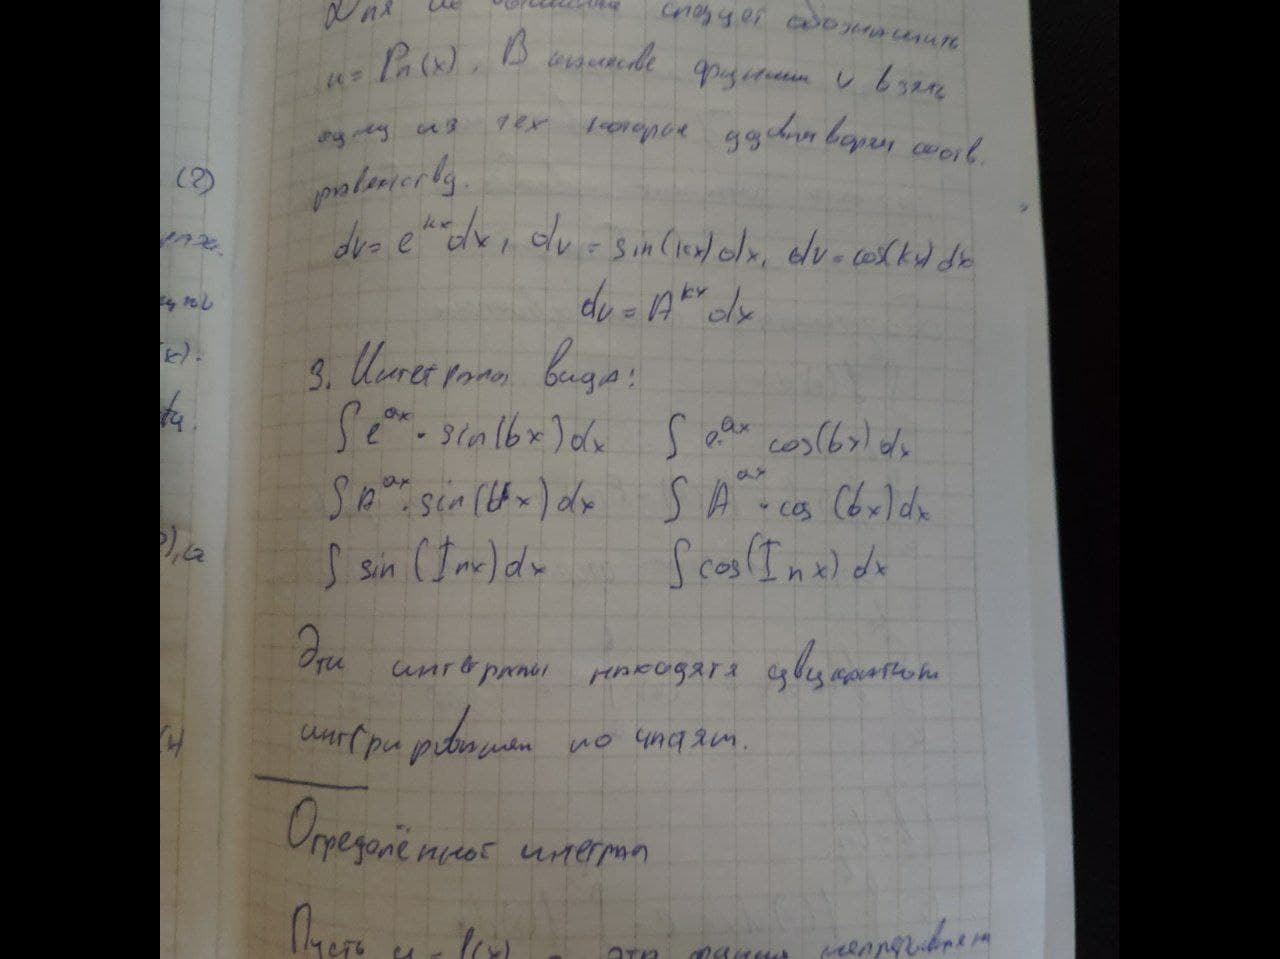 Для их вычисления следует обозначить
u = Pn(x). В качестве функции v взять
одну из тех которые удовлетворяет соотв.
равенству.
dv = e^{kx}dx, dv = sin(kx)dx, dv = cos(kx)dx
dv = A^{kx}dx
3. Интегралы вида:
∫e^{ax}·sin(bx)dx ∫e^{ax} cos(bx)dx
∫A^{ax}·sin(bx)dx ∫A^{ax}·cos(bx)dx
∫sin(Inx)dx ∫cos(Inx)dx
Эти интегралы находятся двукратном
интегрированием по частям.
Определённый интеграл
Пусть y = f(x) - это
(2)